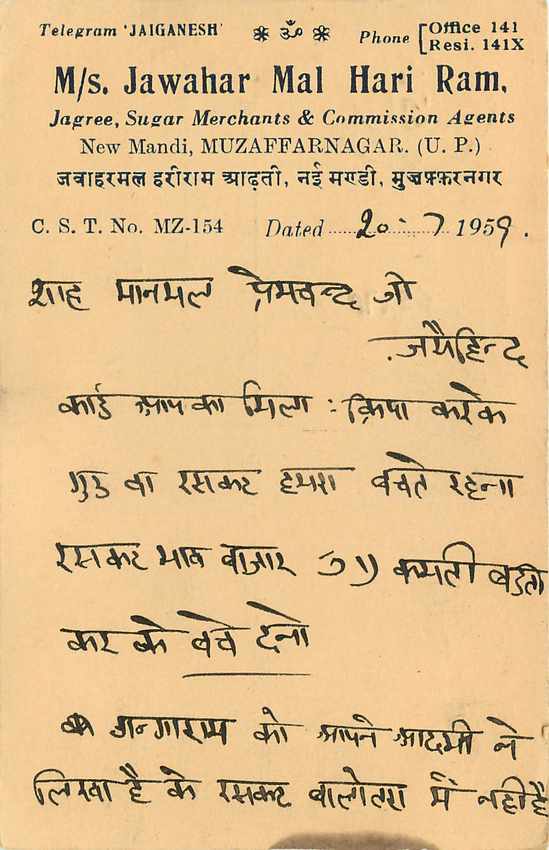 Telegram 'JAIGANESH'
ॐ
Phone [Office 141
Resi. 141X
M/s. Jawahar Mal Hari Ram,
Jagree, Sugar Merchants & Commission Agents
New Mandi, MUZAFFARNAGAR. (U. P.)
जवाहरमल हरीराम आढ़ती, नई मण्डी, मुज़फ़्फ़रनगर
C. S. T. No. MZ-154 Dated 20-7 1959.
शाह मानमल प्रेमचन्द जी
जयेहिन्द
कार्ड आप का मिला : क्रिपा करके
गुड वा रसकट हमरा बेचते रहना
रसकट भाव बाजार कमती बडती
कर के बेचे देनो
गंगाराम को आपने आदमी ने
लिखा है के रसकट बालोतरा में नही है